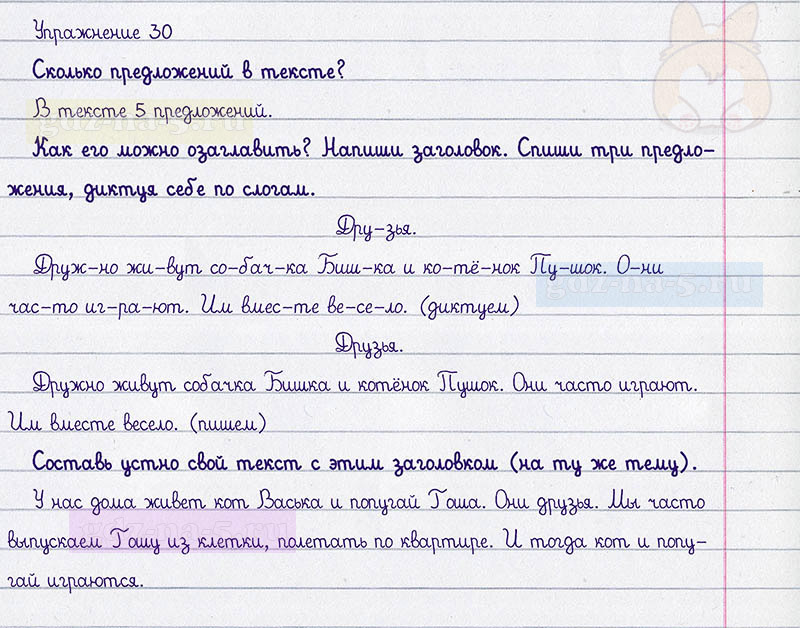 Упражнение 30
Сколько предложений в тексте?
В тексте 5 предложений.
gdz-na-5.ru
Как его можно озаглавить? Напиши заголовок. Спиши три предло-
жения, диктуя себе по слогам.
Дру-зья.
Друж-но жи-вут со-бач-ка Биш-ка и ко-тё-нок Пу-шок. О-ни
gdz-na-5.ru
час-то иг-ра-ют. Им вмес-те ве-се-ло. (диктуем)
Друзья.
Дружно живут собачка Бишка и котёнок Пушок. Они часто играют.
Им вместе весело. (пишем)
Составь устно свой текст с этим заголовком (на ту же тему).
У нас дома живет кот Васька и попугай Гаша. Они друзья. Мы часто
gdz-na-5.ru
выпускаем Гашу из клетки, полетать по квартире. И тогда кот и попу-
гай играются.